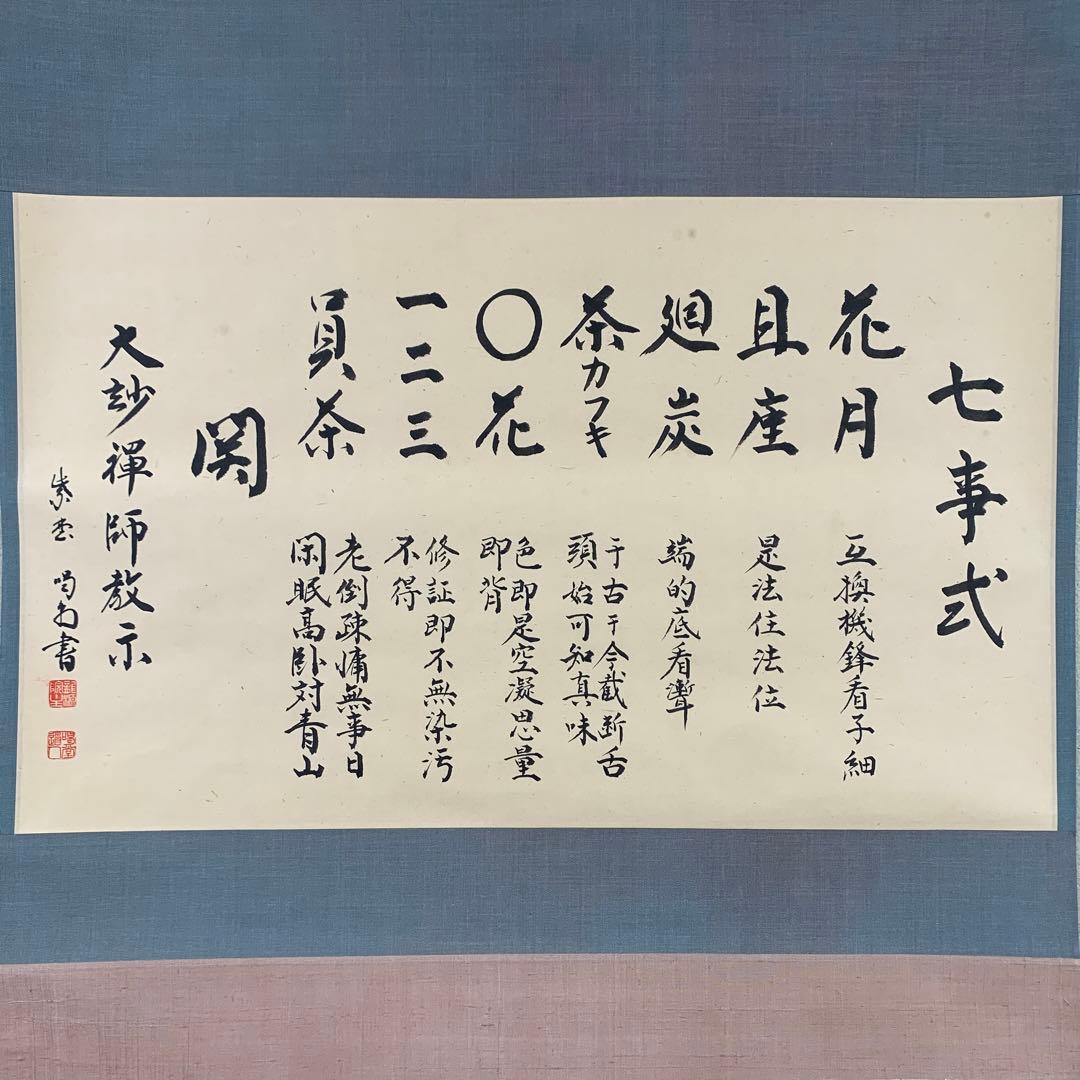 七事式
花月
互換機鋒看子細
且座
是法住法位
廻炭
端的底看聻
茶カフキ
于古于今截断舌
頭始可知真味
〇花
色即是空凝思量
即背
一二三
修証即不無染污
不得
員茶
老倒疎慵無事日
閑眠高臥対青山
関
大玅禅師教示
紫野 書